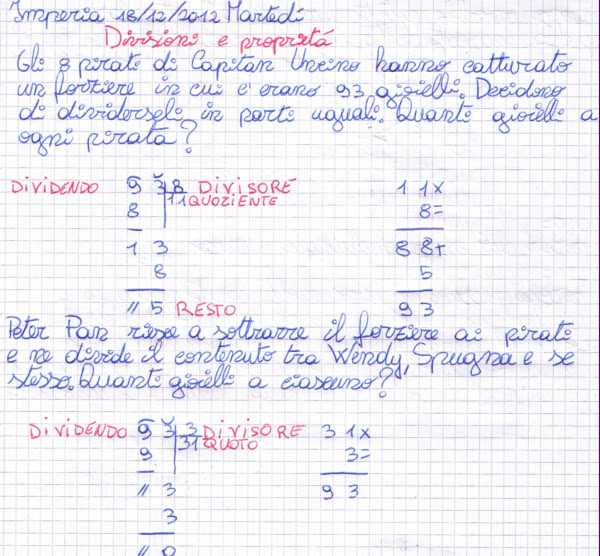 Imperia 18/12/2012 Martedí
Divisioni e proprietá
Gli 8 pirati di Capitan Uncino hanno catturato
un forziere in cui c'erano 93 gioielli. Decidono
di dividerseli in parti uguali. Quanti gioielli a
ogni pirata?
DIVIDENDO 9 3 8 DIVISORE 1 1x
8 11 QUOZIENTE 8=
1 3 8 8+
8 5
// 5 RESTO 9 3
Peter Pan riesce a sottrarre il forziere ai pirati
e ne divide il contenuto tra Wendy, Spugna e se
stesso. Quanti gioielli a ciascuno?
DIVIDENDO 9 3 3 DIVISORE 3 1x
9 31 QUOTO 3=
// 3 9 3
3
// 0